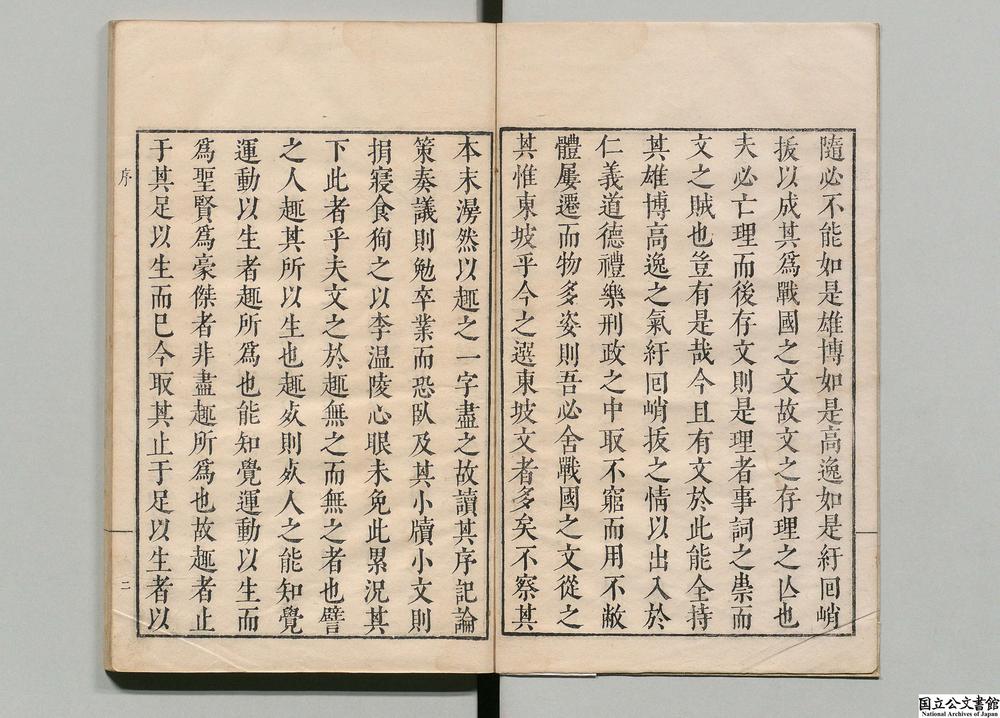 隨必不能如是雄博如是高逸如是紆回峭
拔以成其為戰國之文故文之存理之亾也
夫必亡理而後存文則是理者事詞之祟而
文之賊也豈有是哉今且有文於此能全持
其雄博高逸之氣紆回峭拔之情以出入於
仁義道德禮樂刑政之中取不窮而用不敝
體屢遷而物多姿則吾必舍戰國之文從之
其惟東坡乎今之選東坡文者多矣不察其
本末漫然以趣之一字盡之故讀其序記論
策奏議則勉卒業而恐臥及其小牘小文則
捐寢食徇之以李温陵心眼未免此累況其
下此者乎夫文之於趣無之而無之者也譬
之人趣其所以生也趣死則死人之能知覺
運動以生者趣所為也能知覺運動以生而
為聖賢為豪傑者非盡趣所為也故趣者止
于其足以生而已今取其止于足以生者以
序
二
国立公文書館
National Archives of Japan